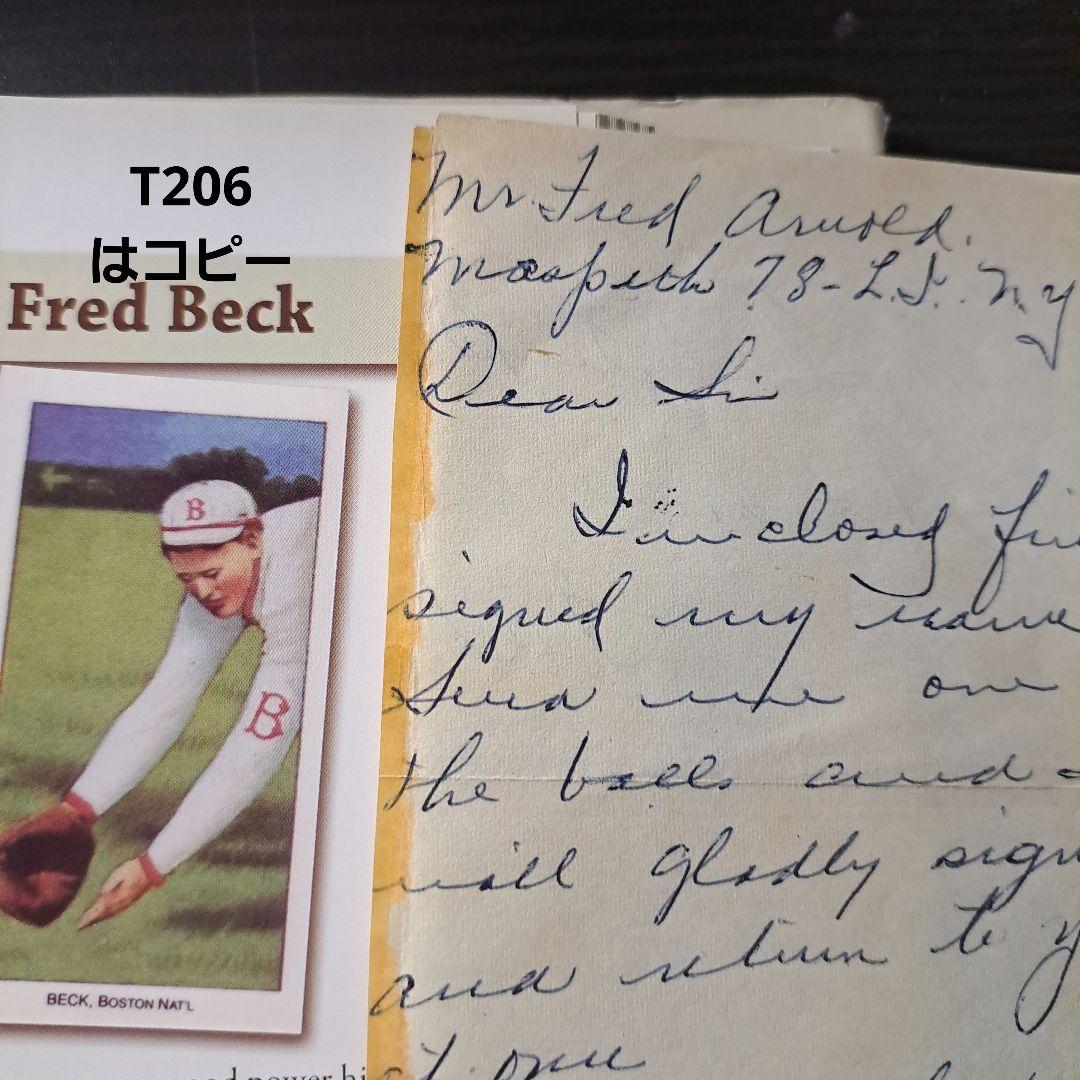 T206
はコピー
Fred Beck
B
B
BECK, BOSTON NAT'L
Mr. Fred Arnold.
Maspeth 78-L.I. N.Y
Dear Sir
Inclosed
signed my name
Send me one
the balls and
will gladly sign
and return to